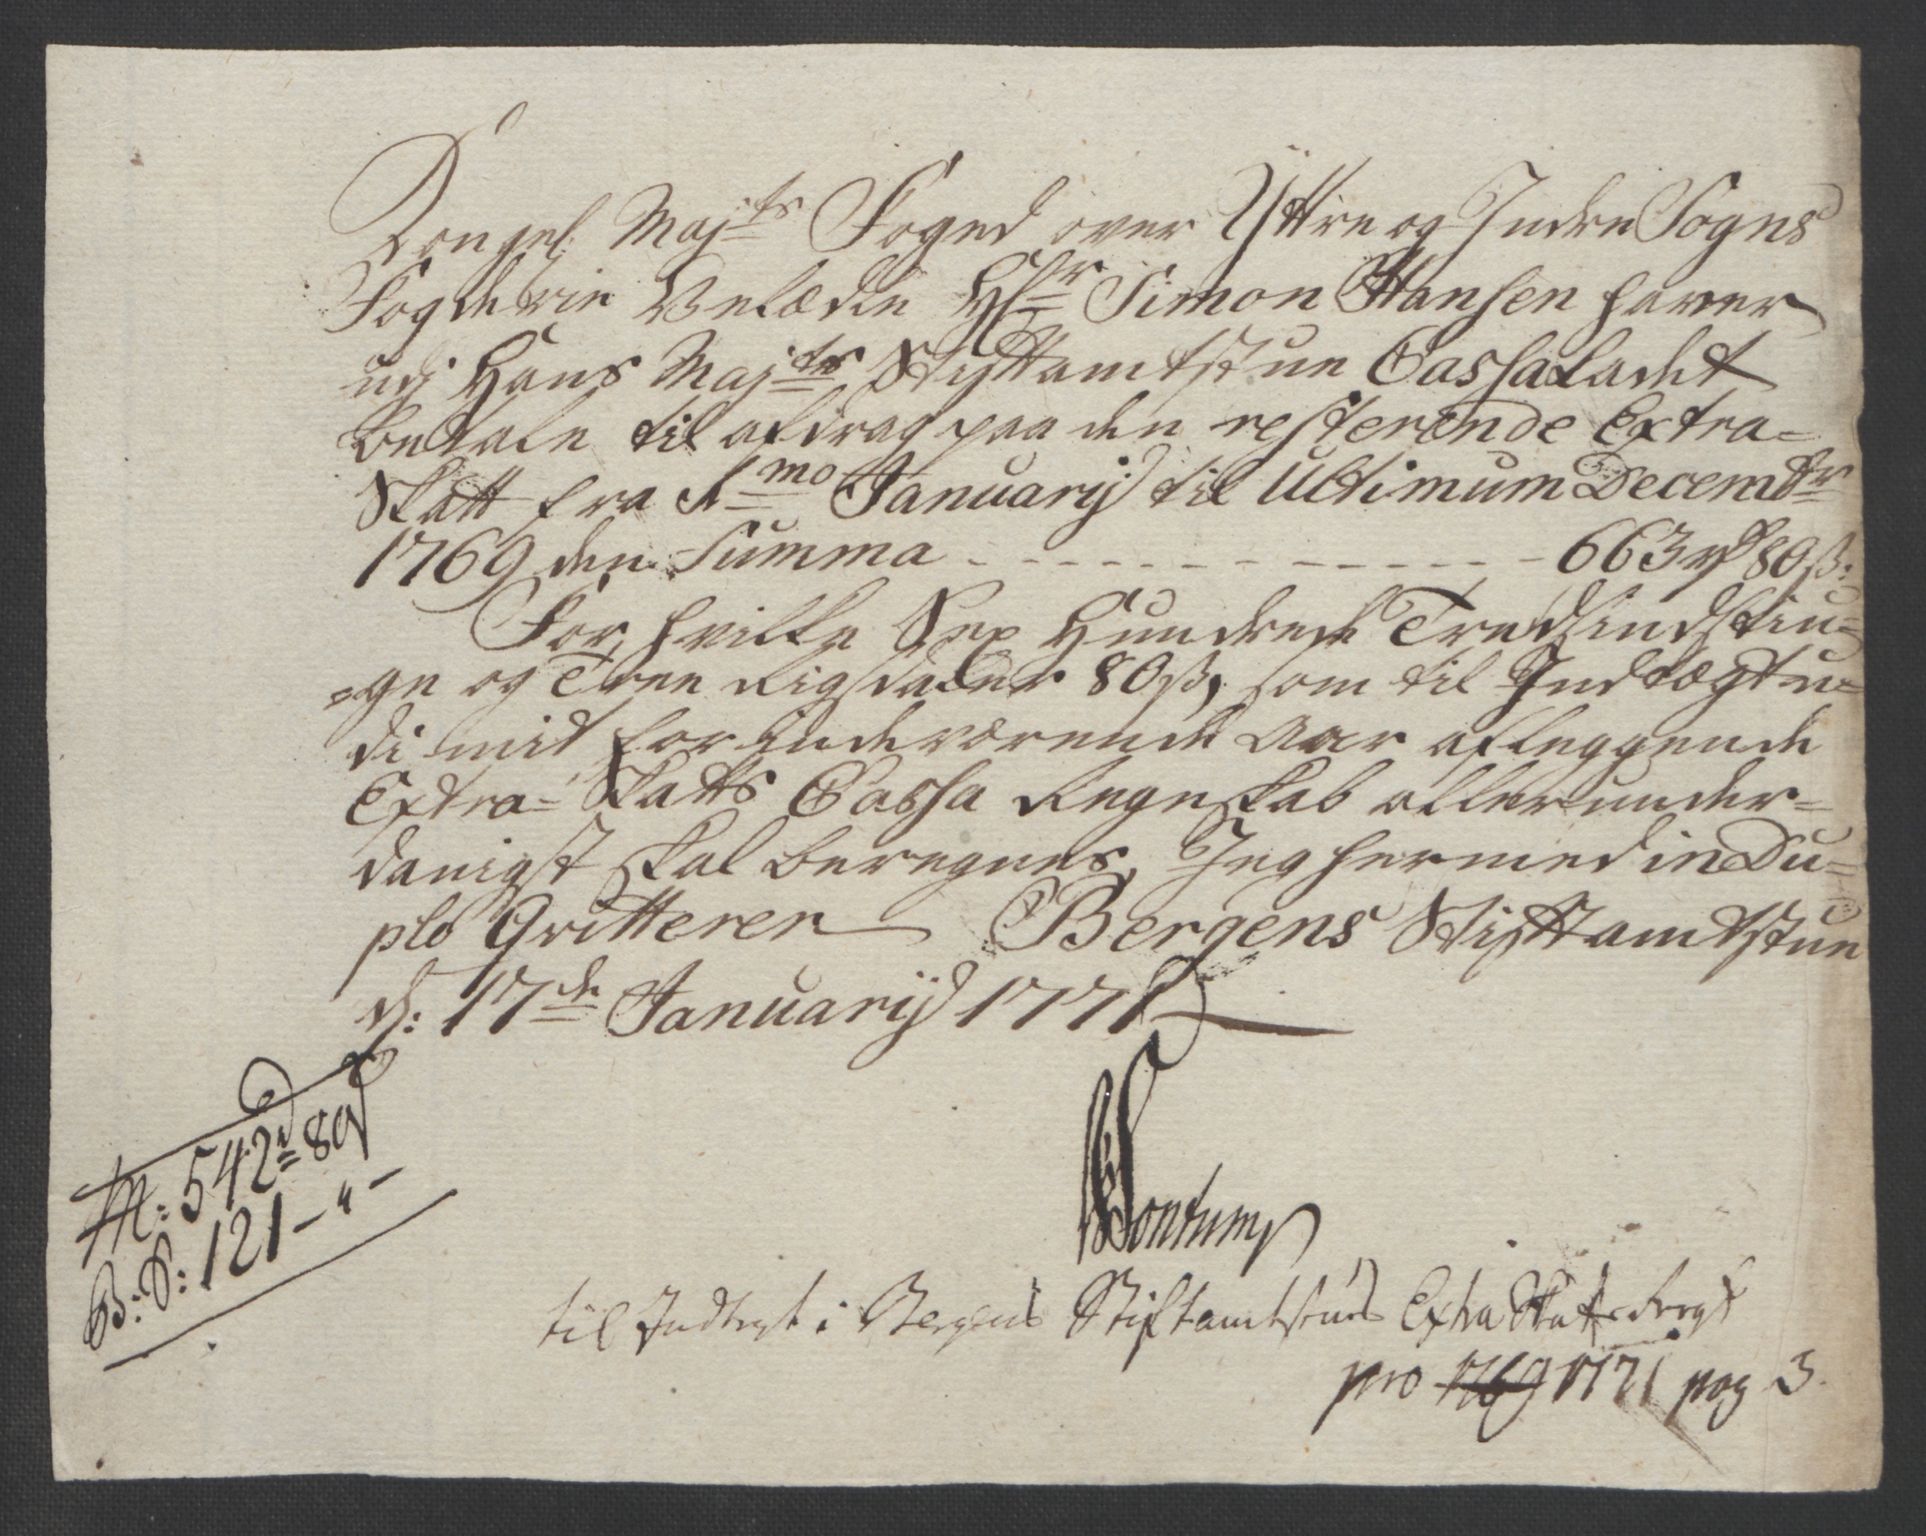 Kongel: Maj:ts Foged over Ÿttre og Indre Sogns
Fogderie Velædle Hr Simon Hansen haver
udj Hans Maj:ts Stiftamtstue Cassa Ladet
betale til afdrag paa den resterende Extra=
Skatt fra 1mo Januarij til Ultimum Decembr
1769 den Summa - - - - - - - - - - - - 663 rd 80 ß:
For hvilke Sex Hundrede Tredsindstiu=
=ge og Tree Rigsdaler 80 ß, som til Indtægt u=
di mit for indeværende Aar aflæggende
Extra= Skatts Cassa Regnskab allerunder=
danigst skal beregnes, Jeg hermed in Du=
plo Qvitterer Bergens Stiftamtstue
d: 17de Januarij 1771
M: 542 rd 80 ß
B: S: 121 - " -
til Indtegt i Bergens Stiftamtstues Extra Skatte
pro 1769 1771 pag 3.